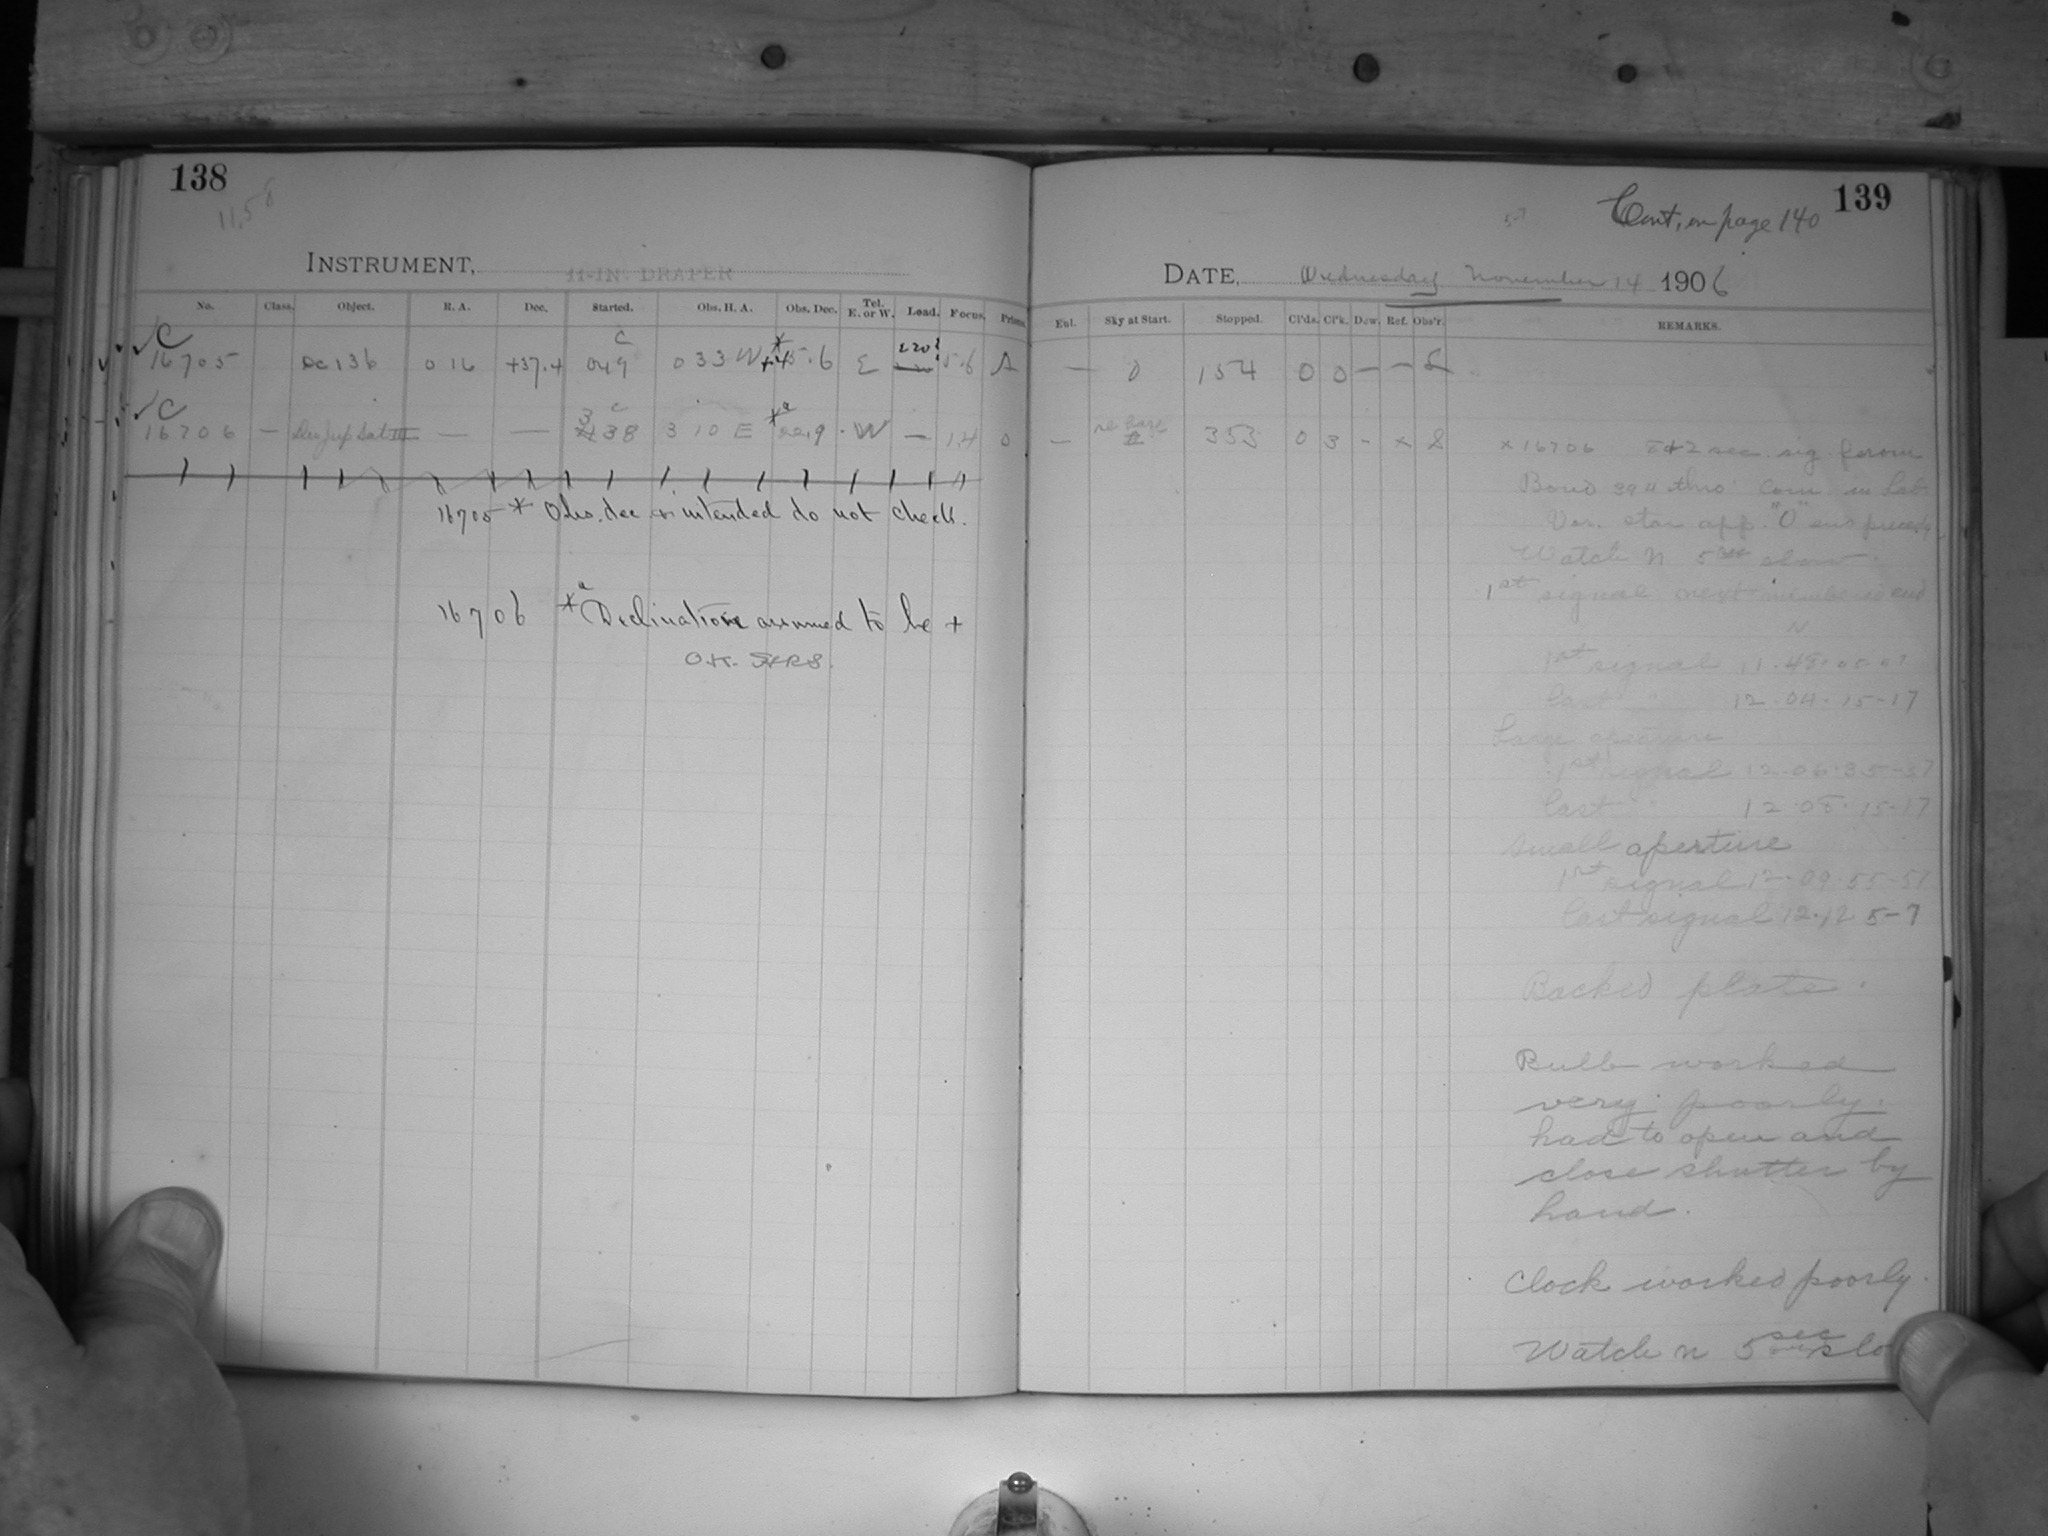 138
11,58
INSTRUMENT, 11-IN. DRAPER
No. Class. Object. R. A. Dec. Started. Obs. H. A. Obs. Dec. Tel. E. or W. Load. Focus. Prisms.
C
16705 136 0 16 +37.4 049 0 33 W +45.6 E 5.6 A
C
16706 — — — 3 38 3 10 E 22.9 W — 14 0
16705 * Obs. dec as intended do not check.
16706 *a Declination assumed to be +
O.K.
139
Cont, on page 140
DATE, Wednesday November 14 1906
Eul. Sky at Start. Stopped. Cl'ds. Cl'k. Dew. Ref. Obs'r. REMARKS.
— 0 154 0 0 — — S
— haze 353 0 3 - x S x 16706 sec. sig. from
Bond 394 thro' in Lab.
Var. star app. "O"
Watch N 5 sec slow.
1st signal next end
N
1st signal 11-48-05-07
last " 12-04-15-17
Large aperture
1st signal 12-06-35-37
last " 12-08-15-17
Small aperture
1st signal 12-09-55-57
last signal 12-12 5-7
Backed plate.
Bulb worked
very poorly.
had to open and
close shutter by
hand.
Clock worked poorly.
Watch N 5 sec slo